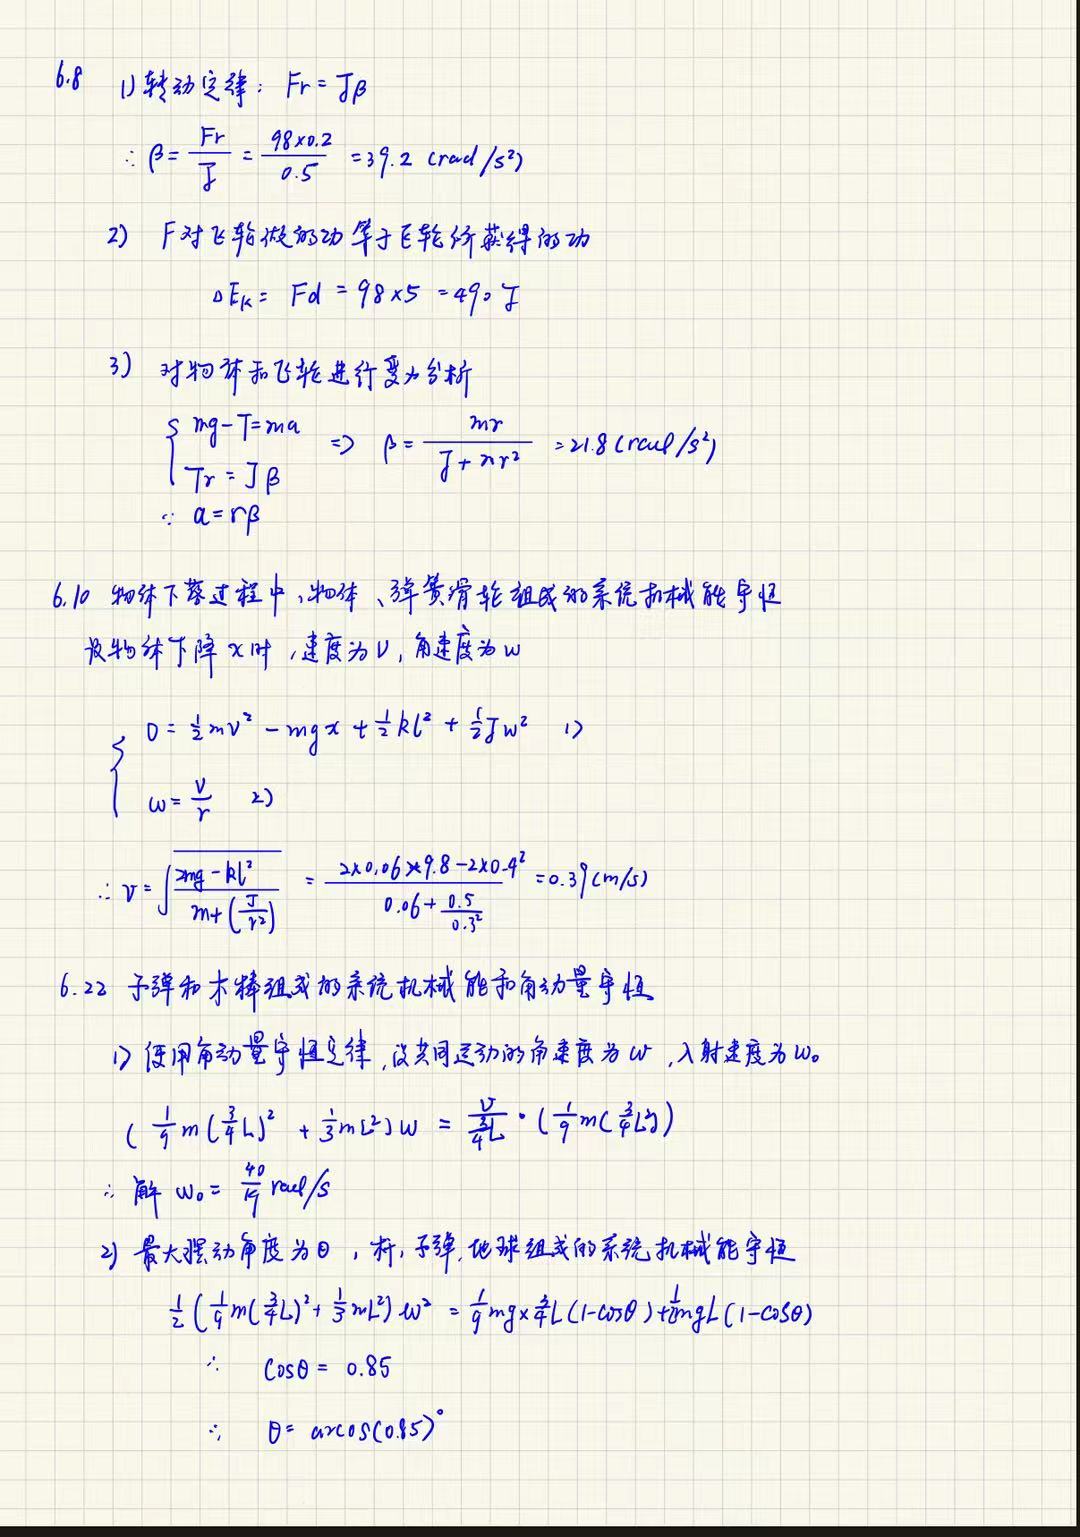 6.8 1) 转动定律: Fr = Jβ
∴ β = Fr/J = 98×0.2/0.5 = 39.2 (rad/s²)
2) F对飞轮做的功等于飞轮所获得的功
ΔEk = Fd = 98×5 = 490 J
3) 对物体和飞轮进行受力分析
{ mg-T=ma
Tr = Jβ ⇒ β = mr/(J+mr²) = 21.8 (rad/s²)
∵ a = rβ
6.10 物体下落过程中,物体、弹簧滑轮组成的系统机械能守恒
设物体下降x时,速度为v,角速度为w
{ 0 = ½mv² - mgx + ½kl² + ½Jw² 1)
w = v/r 2)
∴ v = √((2mg-kl²)/(m+(J/r²))) = (2×0.06×9.8-2×0.4²)/(0.06+0.5/0.3²) = 0.39 (m/s)
6.22 子弹和木棒组成的系统机械能和角动量守恒
1) 使用角动量守恒定律,设共同运动的角速度为w,入射速度为w₀
(1/9 m(3/4 L)² + 1/3 mL²) w = v/(3/4 L) · (1/9 m(3/4 L)²)
∴ 解 w₀ = 40/19 rad/s
2) 最大摆动角度为θ,杆,子弹,地球组成的系统机械能守恒
½(1/9 m(3/4 L)² + 1/3 mL²) w² = 1/9 mg×3/4 L(1-cosθ) + ½mgL(1-cosθ)
∴ cosθ = 0.85
∴ θ = arcos(0.85)°